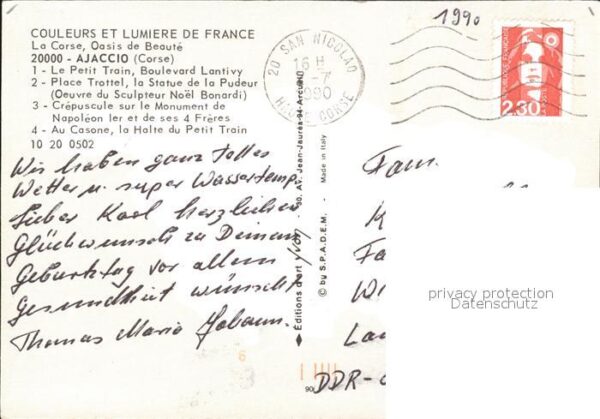 COULEURS ET LUMIERE DE FRANCE
La Corse, Oasis de Beauté
20000 - AJACCIO (Corse)
1 - Le Petit Train, Boulevard Lantivy
2 - Place Trottel, la Statue de la Pudeur
(Oeuvre du Sculpteur Noël Bonardi)
3 - Crépuscule sur le Monument de
Napoléon Ier et de ses 4 Frères
4 - Au Casone, la Halte du Petit Train
10 20 0502
Wir haben ganz tolles
Wetter u. super Wassertemp.
Lieber Karl herzlichen
Glückwunsch zu Deinem
Geburtstag vor allem
Gesundheit wünscht
Thomas Maria Johann.
1990
20 SAN NICOLAO
16 H
-7
1990
HAUTE CORSE
2,30
Editions d'art yvon
30, Av. Jean-Jaurès-94-Arcueil
© by S.P.A.D.E.M. - Made in Italy
Fam.
K
Fa
W
La
DDR-
privacy protection
Datenschutz